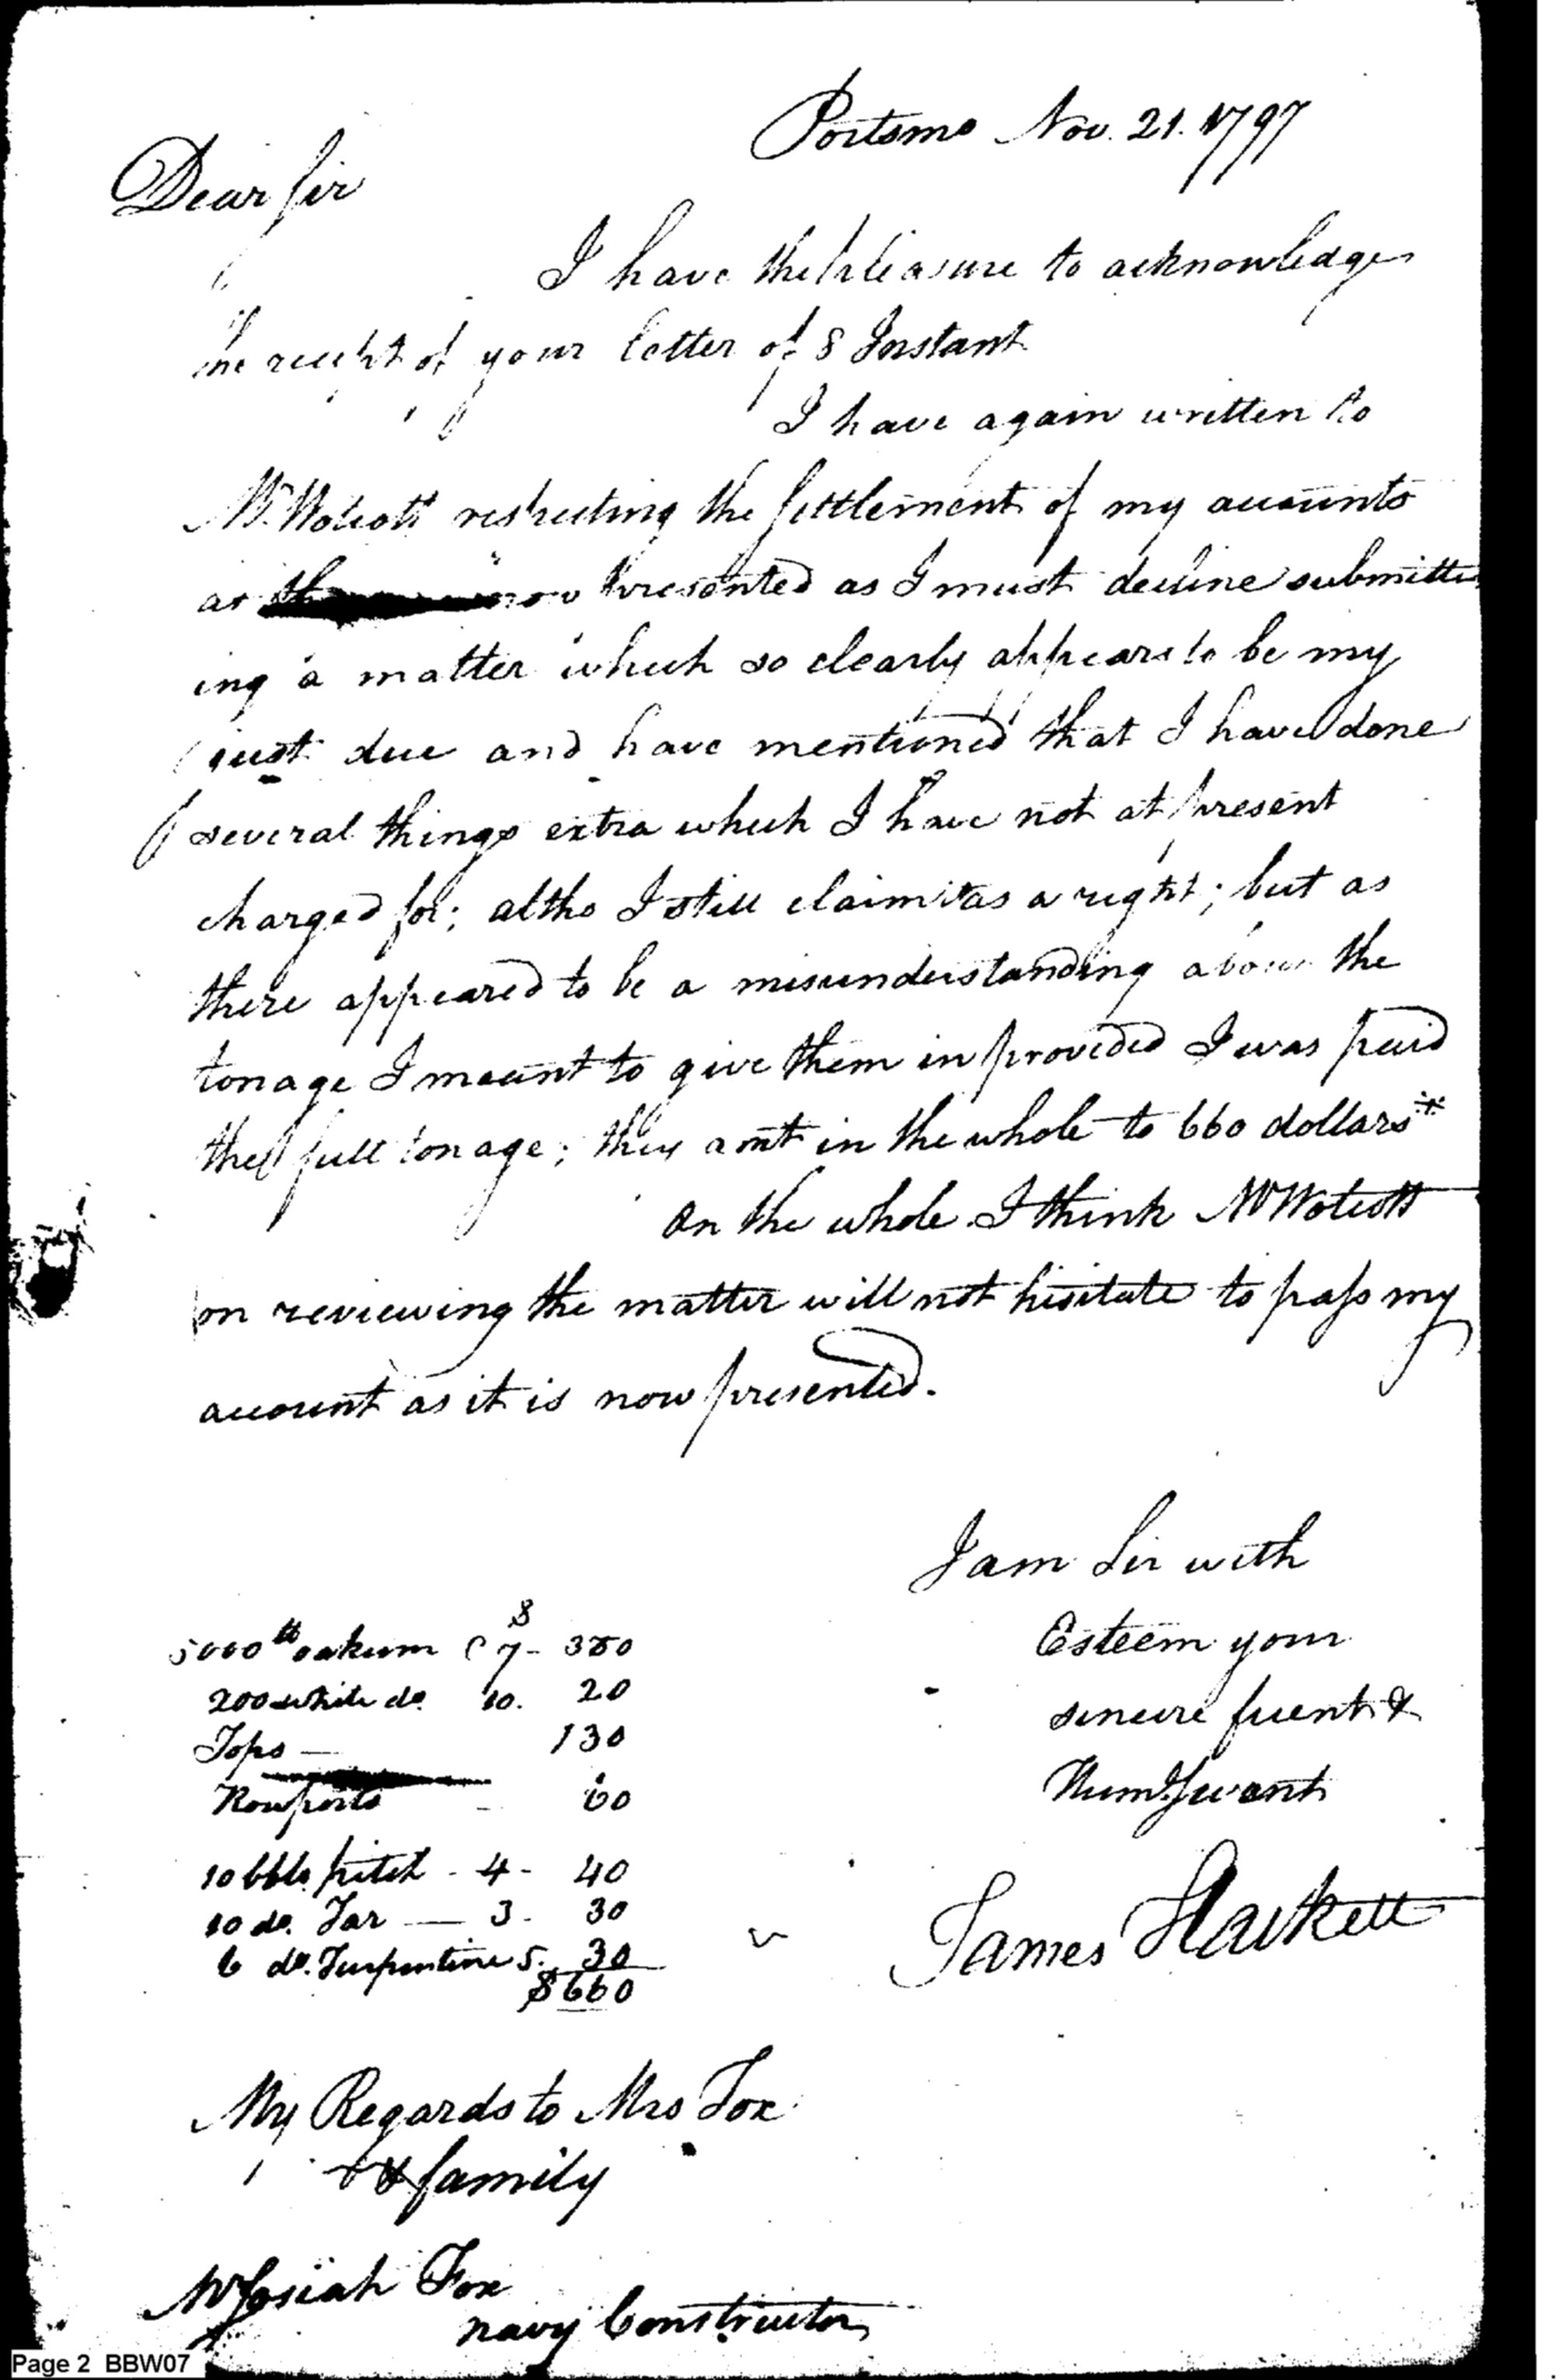 Portsmo Nov. 21. 1797
Dear Sir
I have the pleasure to acknowledge
the receipt of your letter of 8 Instant
I have again written to
Mr. Wolcott respecting the settlement of my accounts
as now presented as I must decline submitt
ing a matter which so clearly appears to be my
just due and have mentioned that I have done
several things extra which I have not at present
charged for; altho I still claim it as a right; but as
there appeared to be a misunderstanding about the
tonage I meant to give them in provided I was paid
the full tonage; they amt in the whole to 660 dollars *
On the whole I think Mr Wolcott
on reviewing the matter will not hisitate to pass my
account as it is now presented.
I am Sir with
Esteem your
sincere frient &
Humb Servant
James Hackett
5000 lb oakum @ 7 $ - 350
200 white do. 10. 20
Tops — 130
Rowports - 60
10 bbls. pitch - 4 - 40
10 do. Tar — 3 - 30
6 do. Turpentine 5. 30
$660
My Regards to Mrs Fox
& family
Mr Josiah Fox
navy Constructor
Page 2 BBW07